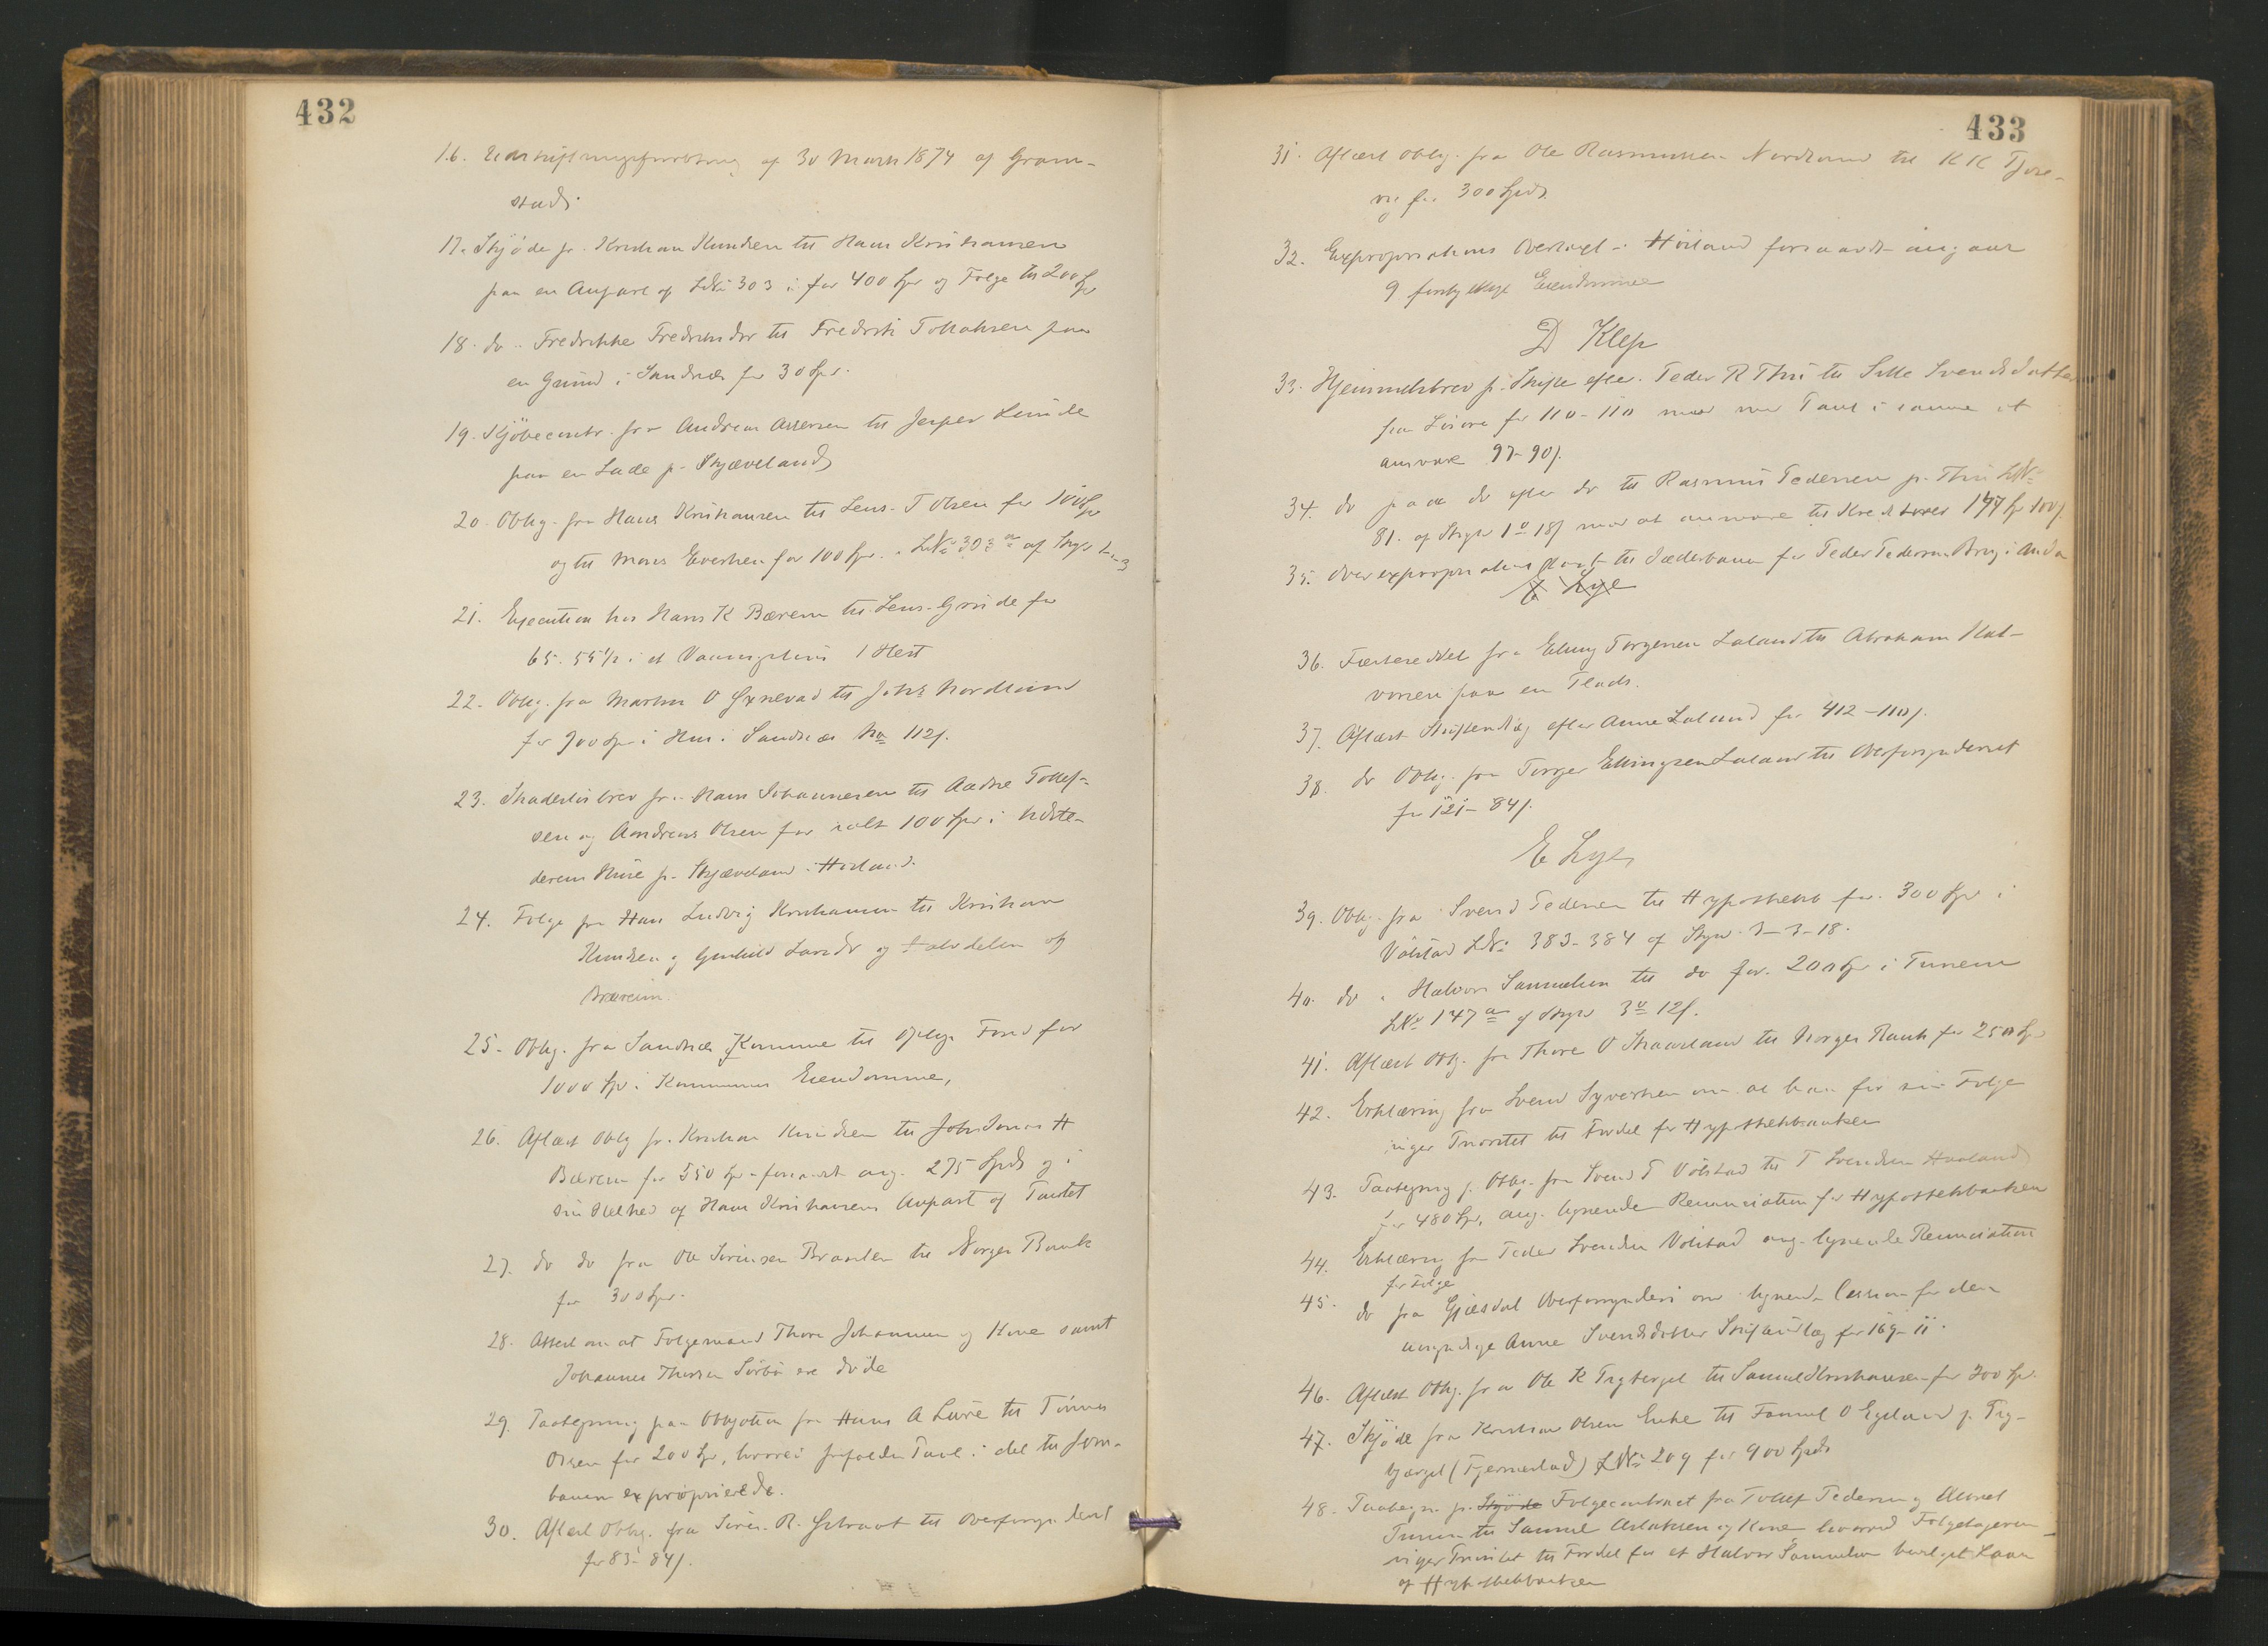 432
16. Udskiftningsforretning af 30 Marts 1874 af Gram-
stad.
17. Skjøde fr. Kristian Knudsen til Hans Kristiansen
paa en Anpart af LNo 303 i for 400 Spd og Folge til 200 Spd
18. do .. Fredrikke Fredriksdr til Fredrik Tollaksen paa
en Grund i Sandnæs for 30 Spd.
19. Kjøbecontr. fra Andreas Assersen til Jesper Lunde
paa en Lade p. Skjæveland
20. Oblig. fra Hans Kristiansen til Lens. T Olsen for 100 Spd
og til Mons Evertsen for 100 Spd. i LNo 303 a af Skyld
21. Execution hos Hans K Bærem til Lens. Grude for
65. 55 1/2 i et Vaaningshus 1 Hest
22. Oblig. fra Martin O til Johs Nordlund
for 900 Spd i Hus i Sandnæs No 112.
23. Skadesløsbrev fr. Hans Johannesen til Aadne Tollef-
sen og Andreas Olsen for ialt 100 Spd i Udste-
derens Huse p. Skjæveland i Høiland.
24. Folge fra Hans Ludvig Kristiansen til Kristian
Knudsen og Gunhild Larsdr og Halvdelen af
Bræreim.
25. Oblig. fra Sandnæs Komune til Oplys Fond for
1000 Spd i Kommunens Eiendomme,
26. Aflæst Oblig fr. Kristian Knudsen til John Jonas H
Bærem for 550 Spd forsaavidt ang. 275 Spd og i
sin Helhed af Hans Kristiansens Anpart af Pantet
27. do do fra Ole Sørensen Brasten til Norges Bank
for 300 Spd.
28. Attest om at Folgemand Thore Johannesen og Kone samt
Johannes Thorsen Sørbø ere døde
29. Paategning paa Obligation fra Hans A Lure til Tønnes
Olsen for 200 Spd, hvorved Pant i det til Jern-
banen exproprierede.
30. Aflæst Oblig. fra Søren R. til Overformynderiet
for 83 - 84.
433
31. Aflæst Oblig. fra Ole Rasmussen Nordland til K K Tjose-
vig for 300 Spd.
32. Expropriations Overtaxt i Høiland forsaavidt angaar
9 forskjellige Eiendomme
D Klep
33. Hjemmelsbrev p. Skifte efter Peder R Thu til Sille Svendsdatter
fra for 110 - 110 mod Pant i samme at
ansvare 97 - 90.
34. do paa do efter do til Rasmus Pedersen p. Thu LNo
81. af Skyld 1 o 18 mod at ansvare til Kreditorer 177 Spd 100
35. Overexpropriations taxt til Jæderbanen for Peder Pedersens Brug i Anda
E Lye
36. Fæstesedel fra Elling Torgersen Laland til Abraham Hal-
vorsen paa en Plads.
37. Aflæst Skifteudlæg efter Anne Laland for 412 - 110.
38. do Oblig. fra Torger Ellingsen Laland til Overformynderiet
for 121 - 84.
E Lye,
39. Oblig. fra Svend Pedersen til Hypothekb for 300 Spd i
Vølstad LNo 383 - 384 af Skyld 3 - 3 - 18.
40. do .. Halvor Samuelsen til do for 200 Spd i Tunem
LNo 147 a af Skyld 3 o 12.
41. Aflæst Oblig. fra Thore O Skaarland til Norges Bank for 250 Spd
42. Erklæring fra Svend Syvertsen om at han for sin Folge
viger Prioritet til Fordel for Hypothekbanken
43. Paategning p. Oblig. fra Svend T Vølstad til T Svendsen Haaland
for 480 Spd, ang. lignende Renunciation for Hypothekbanken
44. Erklæring fra Peder Svendsen Vølstad ang. lignende Renunciation
for Folge
45. do fra Gjæsdal Overformynderi om lignende Cession for den
umyndige Anne Svendsdatter Skifteudlæg for 169 - 11.
46. Aflæst Oblig. fra Ole K Trytergel til Samuel Kristiansen for 200 Spd.
47. Skjøde fra Kristian Olsen Enke til O Egeland p. Try-
bjærgel (Fjermestad) LNo 209 for 900 Spd
48. Paategn. p. Skjøde Folgecontract fra Tollef Pedersen
Tunem til Samuel Aslaksen og Kone hvorved Folgetageren
viger Prioritet til Fordel for et Halvor Samuelsen bevilget Laan
af Hypothekbanken